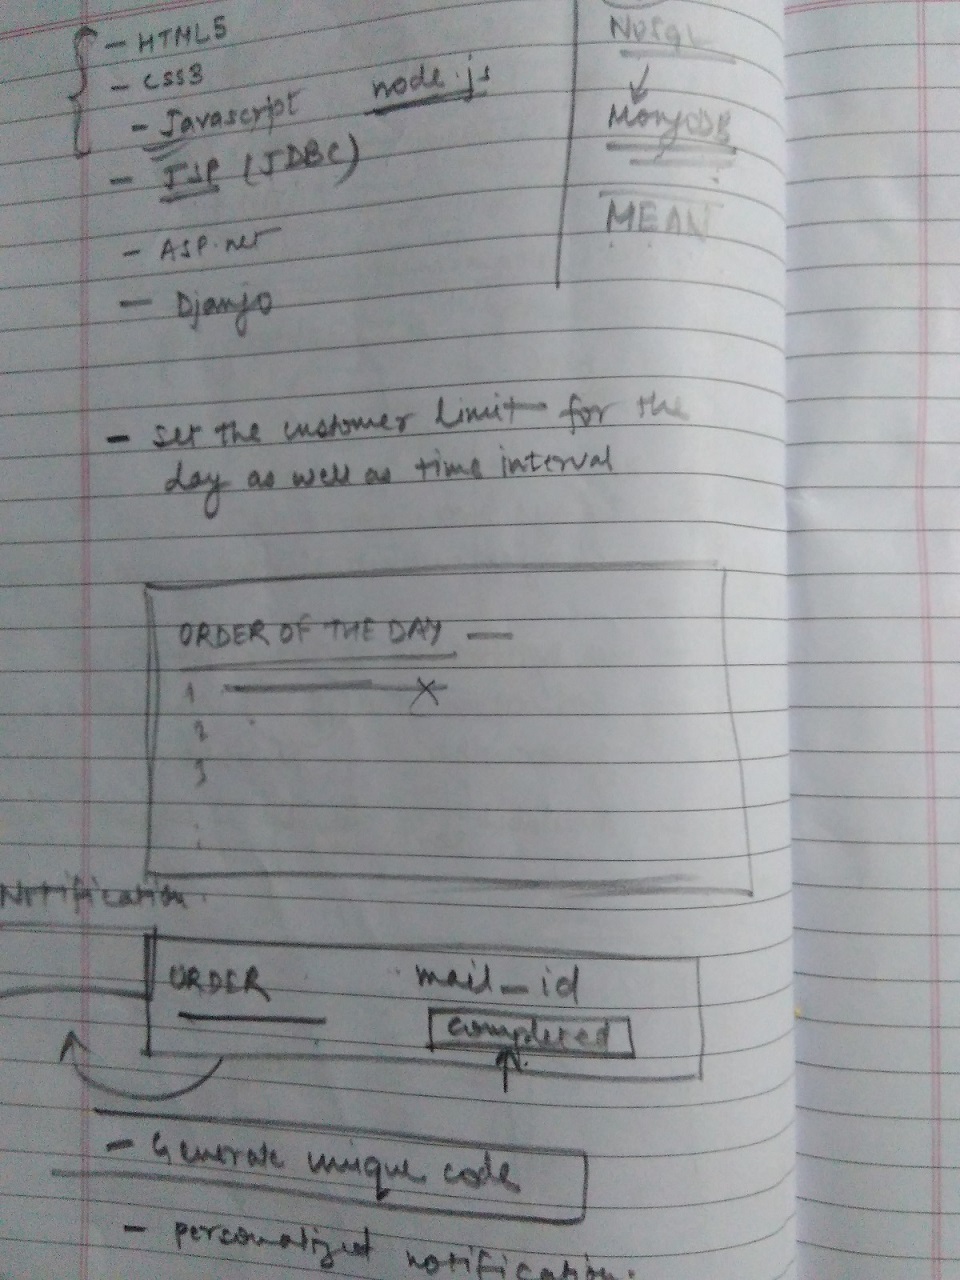 - HTML5
- CSS3
- Javascript node.js
- JSP (JDBC)
- ASP.net
- Django
NoSQL
MongoDB
MEAN
- set the customer limit for the
day as well as time interval
ORDER OF THE DAY —
1
2
3
Notification.
ORDER mail_id
completed
- Generate unique code
- personalized notification.